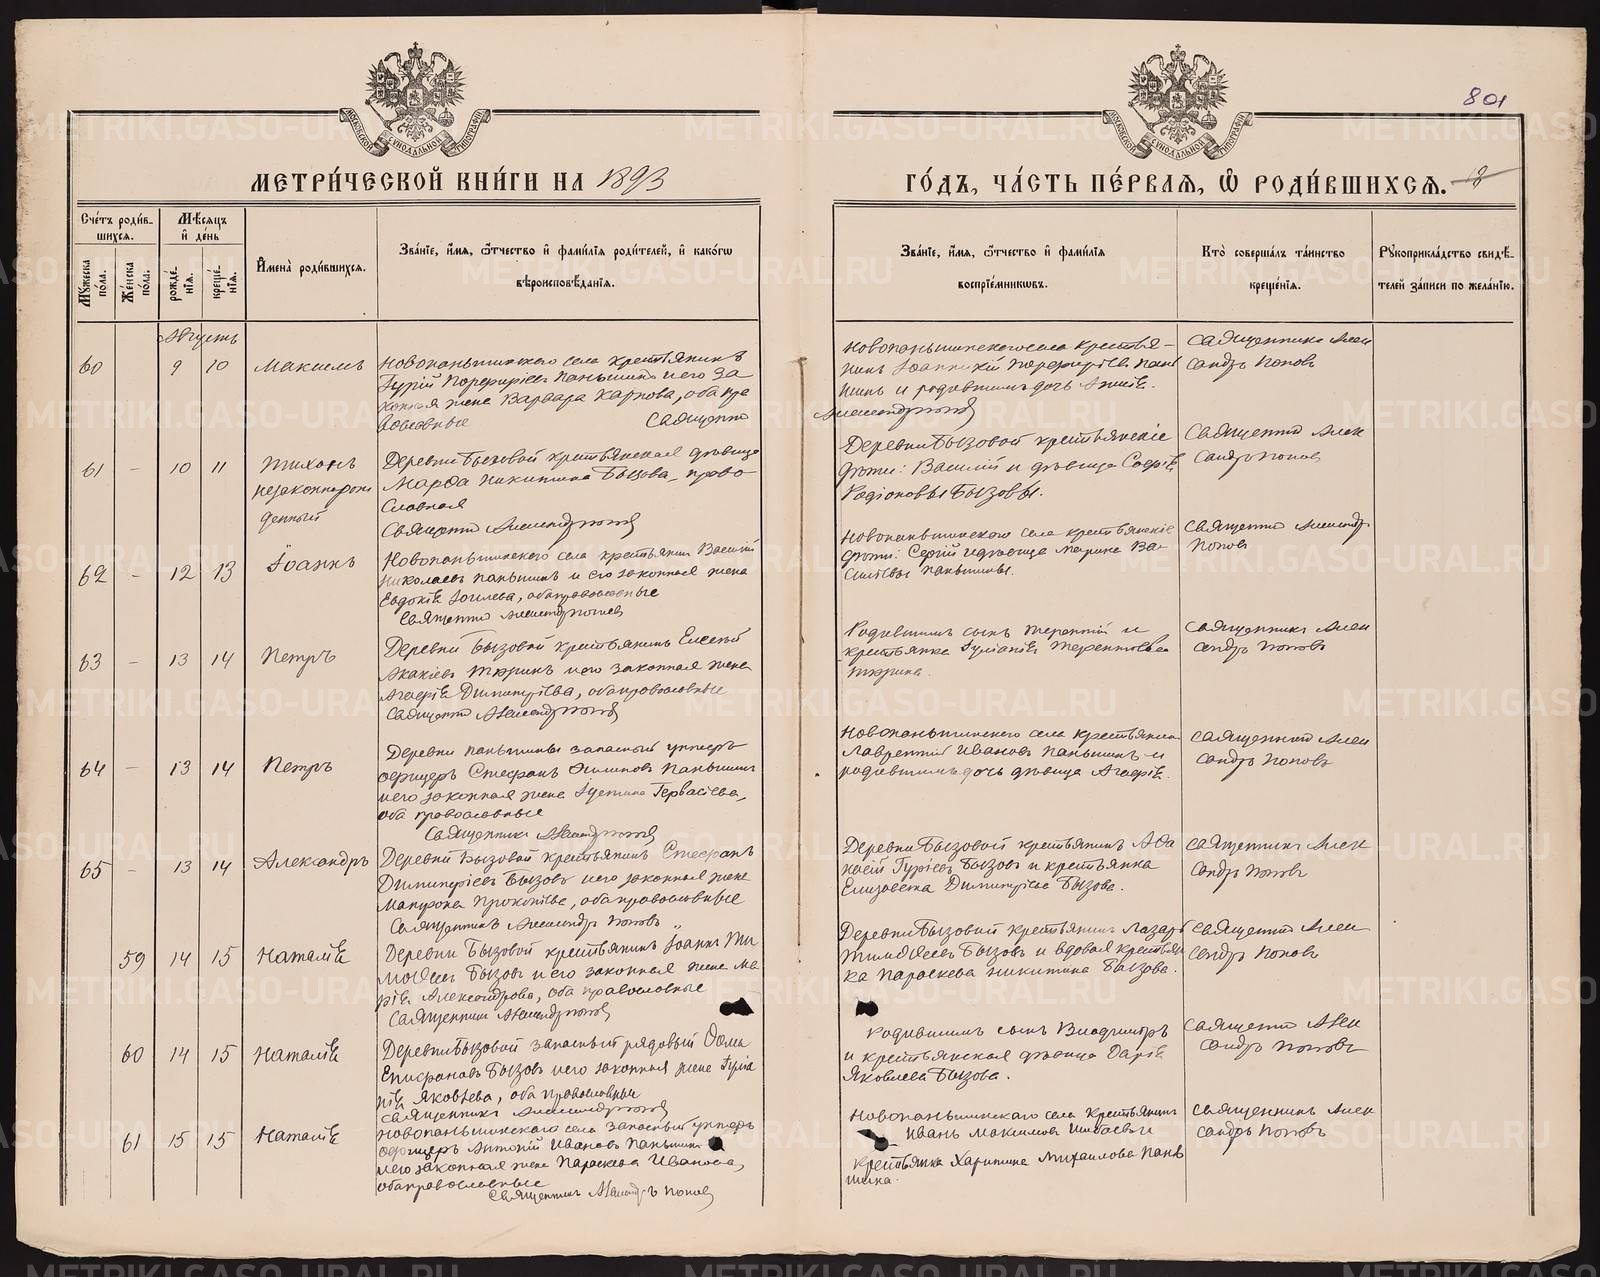 801
МЕТРИ́ЧЕСКОЙ КНИ́ГИ НА 1893
ГО́ДЪ, ЧА́СТЬ ПЕ́РВАЯ, Ѡ҆ РОДИ́ВШИХСЯ.
МОСКОВСКОЙ СѴНОДАЛЬНОЙ ТИПОГРАФІИ
МОСКОВСКОЙ СѴНОДАЛЬНОЙ ТИПОГРАФІИ
Сче́тъ роди́в-
шихся.
Мѣ́сяцъ
и҆ де́нь
Му́жеска по́ла.
Же́нска по́ла.
рожде́нїя.
креще́нїя.
И҆мена̀ роди́вшихся.
Зва́нїе, и҆́мя, ѻ҆́тчество и҆ фами́лїя роди́телей, и҆ како́гѡ
вѣроисповѣ́данїя.
Зва́нїе, и҆́мя, ѻ҆́тчество и҆ фами́лїя
воспрїе́мниковъ.
Кто̀ соверша́лъ та́инство
креще́нїя.
Рꙋкоприкла́дство свидѣ́-
телей за́писи по жела́нїю.
Августъ
60 9 10 Максимъ
Новопаньшинскаго села крестьянинъ
Гурій Порфиріевъ Паньшинъ и его за
конная жена Варвара Карпова, оба пра
вославные Священно
Новопаньшинскаго села крестья-
нинъ Іоанникій Порфиріевъ Пань
шинъ и родившихъ дочь
Священникъ Алек
сандръ Поповъ
61 – 10 11 Тихонъ
незаконнорож
денный
Деревни Бызовой крестьянская дѣвица
Марфа Никитина Бызова, право
славная
Деревни Бызовой крестьянскіе
дѣти: Василій и дѣвица Софія
Родіоновы Бызовы.
Алек
сандръ Поповъ
62 – 12 13 Іоаннъ
Новопаньшинскаго села крестьянинъ Василій
Николаевъ Паньшинъ и его законная жена
Евдокія оба православные
Новопаньшинскаго села крестьянскіе
дѣти: Сергій и дѣвица Марина Ва-
сильевы Паньшины.
Поповъ
63 – 13 14 Петръ
Деревни Бызовой крестьянинъ Елисей
Акакіевъ Тюринъ и его законная жена
Агафія Димитріева, оба православные
Родившихъ сынъ Терентій и
крестьянка Терентьева
Тюрина.
Священникъ Алек
сандръ Поповъ
64 – 13 14 Петръ
Деревни Паньшины запасный унтеръ
офицеръ Стефанъ Паньшинъ
и его законная жена Іустина Гервасіева,
оба православные
Новопаньшинскаго села крестьянинъ
Лаврентій Ивановъ Паньшинъ и
родившихъ дочь дѣвица Агафія.
Священникъ Алек
сандръ Поповъ
65 – 13 14 Александръ
Деревни Бызовой крестьянинъ Стефанъ
Димитріевъ Бызовъ и его законная жена
Матрона Прокопьева, оба православные
Священникъ Александръ Поповъ
Деревни Бызовой крестьянинъ Аѳа
насій Гуріевъ Бызовъ и крестьянка
Елизавета Димитріева Бызова.
Священникъ Алек
сандръ Поповъ
59 14 15 Наталія
Деревни Бызовой крестьянинъ Іоаннъ Ти
моѳеевъ Бызовъ и его законная жена Ма
рія Александрова, оба православные
Деревни Бызовой крестьянинъ Лазарь
Тимоѳеевъ Бызовъ и вдовая крестьян
ка Параскева Никитина Бызова.
Алек
сандръ Поповъ
60 14 15 Наталія
Деревни Бызовой запасный рядовый Ѳома
Епифановъ Бызовъ и его законная жена
Яковлева, оба православные
Родившихъ сынъ Владиміръ
и крестьянская дѣвица Дарія
Яковлева Бызова.
Алек
сандръ Поповъ
61 15 15 Наталія
Новопаньшинскаго села запасный унтеръ
офицеръ Антоній Ивановъ Паньшинъ
и его законная жена Параскева Иванова,
оба православные
Священникъ Александръ Поповъ
Новопаньшинскаго села крестьянинъ
Иванъ Максимовъ и
крестьянка Харитина Михайлова Пань
шина.
Священникъ Алек
сандръ Поповъ
METRIKI.GASO-URAL.RU